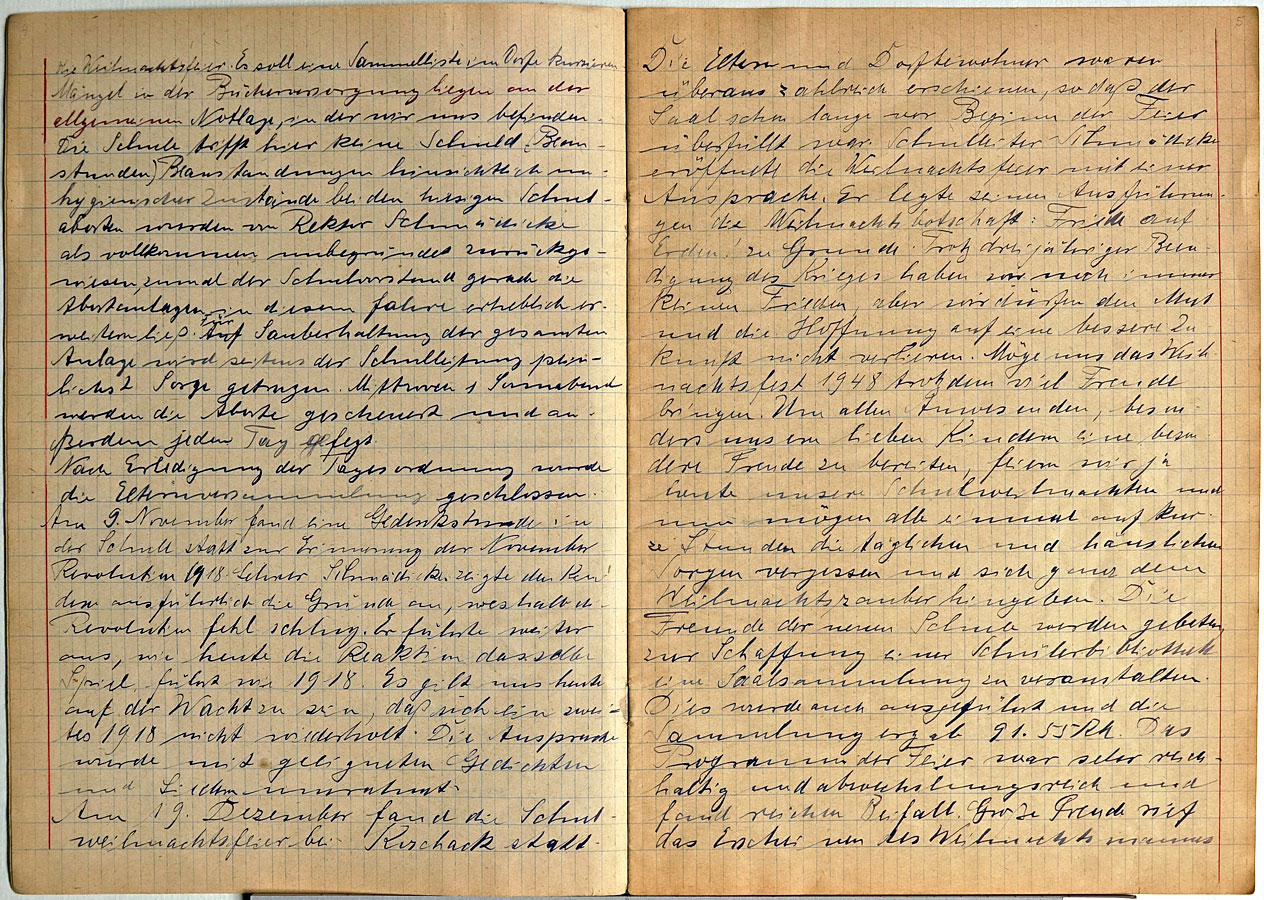 die Weihnachtsfeier. Es soll eine Sammelliste im Dorfe kursieren
Mängel in der Bücherversorgung liegen an der
allgemeinen Notlage, in der wir uns befinden.
Die Schule trifft hier keine Schuld. (Bean-
standen) Beanstandungen hinsichtlich un-
hygienischer Zustände bei den hiesigen Schul-
aborten wurden von Rektor Schmädicke
als vollkommen unbegründet zurückge-
wiesen, zumal der Schulvorstand gerade die
Abortanlagen in diesem Jahre erheblich er-
weitern ließ. Für Auf Sauberhaltung der gesamten
Anlage wird seitens der Schulleitung pein-
lichst Sorge getragen. Mittwoch s Sonnabend
werden die Aborte gescheuert und au-
ßerdem jeden Tag gefegt.
Nach Erledigung der Tagesordnung wurde
die Elternversammlung geschlossen.
Am 9. November fand eine Gedenkstunde in
der Schule statt zur Erinnerung der November
Revolution 1918. Lehrer Schmädicke zeigte den Kin-
dern ausführlich die Gründe an, weshalb d.
Revolution fehl schlug. Er führte weiter
aus, wie heute die Reaktion dasselbe
Spiel führt wie 1918. Es gilt uns heute
auf der Wacht zu sein, daß sich ein zwei-
tes 1918 nicht wiederholt. Die Ansprache
wurde mit geeigneten Gedichten
und Liedern umrahmt.
Am 19. Dezember fand die Schul-
weihnachtsfeier bei statt.
5
Die Eltern und Dorfbewohner waren
überaus zahlreich erschienen, so daß der
Saal schon lange vor Beginn der Feier
überfüllt war. Schulleiter Schmädicke
eröffnete die Weihnachtsfeier mit einer
Ansprache. Er legte seinen Ausführun-
gen die Weihnachtsbotschaft: Friede auf
Erden! zu Grunde. Trotz dreijähriger Been-
digung des Krieges haben wir noch immer
keinen Frieden, aber wir dürfen den Mut
und die Hoffnung auf eine bessere Zu-
kunft nicht verlieren. Möge uns das Weih-
nachtsfest 1948 trotzdem viel Freude
bringen. Um allen Anwesenden, beson-
ders unsern lieben Kindern eine beson
dere Freude zu bereiten, feiern wir ja
heute unsere Schulweihnachten und
nun mögen alle einmal auf kur-
ze Stunden die täglichen und häuslichen
Sorgen vergessen und sich ganz dem
Weihnachtszauber hingeben. Die
Freunde der neuen Schule werden gebeten,
zur Schaffung einer Schülerbibliothek
eine Saalsammlung zu veranstalten.
Dies wurde auch ausgeführt und die
Sammlung ergab 91.55 RM. Das
Programm der Feier war sehr reich-
haltig und abwechslungsreich und
fand reichen Beifall. Große Freude rief
das Erscheinen des Weihnachtsmannes